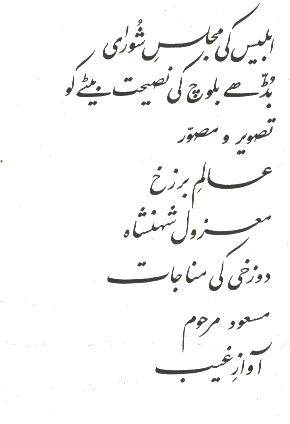 ابلیس کی مجلسِ شُورای
بُڈّھے بلوچ کی نصیحت بیٹے کو
تصویر و مصوّر
عالمِ برزخ
معزول شہنشاہ
دوزخی کی مناجات
مسعود مرحوم
آوازِ غیب